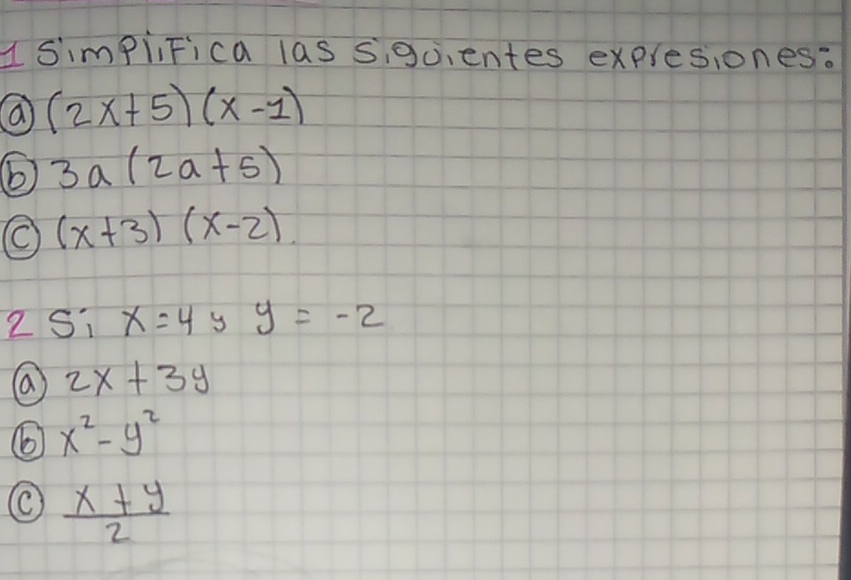 1 Simplifica las siguientes expresiones:
ⓐ (2x+5)(x-1)
ⓑ 3a(2a+5)
ⓒ (x+3)(x-2).
2 Si x=4 y y = -2
ⓐ 2x+3y
ⓑ x²-y²
ⓒ x+y
2